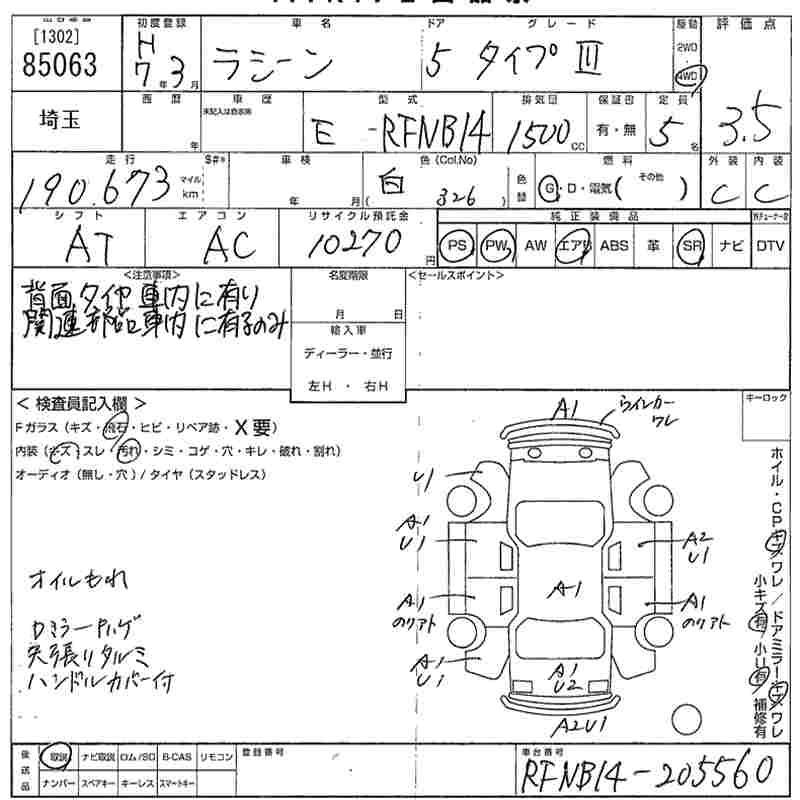 [1302]
85063
初度登録
H
7年3月
車名
ラシーン
ドア
5
グレード
タイプⅢ
駆動
2WD
4WD
評価点
3.5
埼玉
西暦
年
車歴
未記入は自家用
型式
E-RFNB14
排気量
1500cc
保証書
有・無
定員
5名
走行
190.673
マイル
km
S#*
車検
年 月
色(Col.No)
白
( 326 )
色替
燃料
G・D・電気( その他 )
外装
C
内装
C
シフト
AT
エアコン
AC
リサイクル預託金
10270円
純正装備品
PS PW AW エアB ABS 革 SR ナビ
DTV
<注意事項>
背面タイヤ車内に有り
関連部品車内に有るのみ
名変期限
月 日
輸入車
ディーラー・並行
左H ・ 右H
<セールスポイント>
<検査員記入欄>
Fガラス(キズ・飛石・ヒビ・リペア跡・X要)
内装(キズ・スレ・汚れ・シミ・コゲ・穴・キレ・破れ・割れ)
オーディオ(無し・穴)/タイヤ(スタッドレス)
オイルもれ
Dミラーハゲ
天張りタルミ
ハンドルカバー付
キーロック
A1
ウインカー
ワレ
U1
A1
U1
A2
U1
A-1
A1
のりアト
A1
のりアト
A1
U1
A1
U2
A2U1
ホイル・CPキズワレ/ドアミラーキズワレ
小キズ有/小U有/補修有
後送品
取説 ナビ取説 ロム/SD B-CAS リモコン
ナンバー スペアキー キーレス スマートキー
登録番号
車台番号
RFNB14-205560